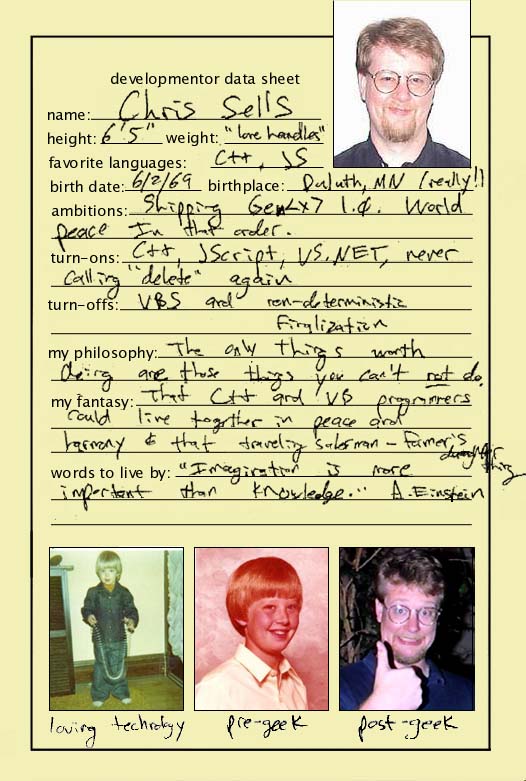 developmentor data sheet
name: Chris Sells
height: 6'5" weight: "love handles"
favorite languages: C++, JS
birth date: 6/2/69 birthplace: Duluth, MN (really!)
ambitions: Shipping Gen<x> 1.0. World
peace In that order.
turn-ons: C++, JScript, VS.NET, never
calling "delete" again
turn-offs: VBS and non-deterministic
Finalization
my philosophy: The only things worth
doing are those things you can't not do.
my fantasy: That C++ and VB programmers
could live together in peace and
harmony & that traveling salesman - farmer's
daughter thing
words to live by: "Imagination is more
important than knowledge." A. Einstein
loving technology pre-geek post-geek